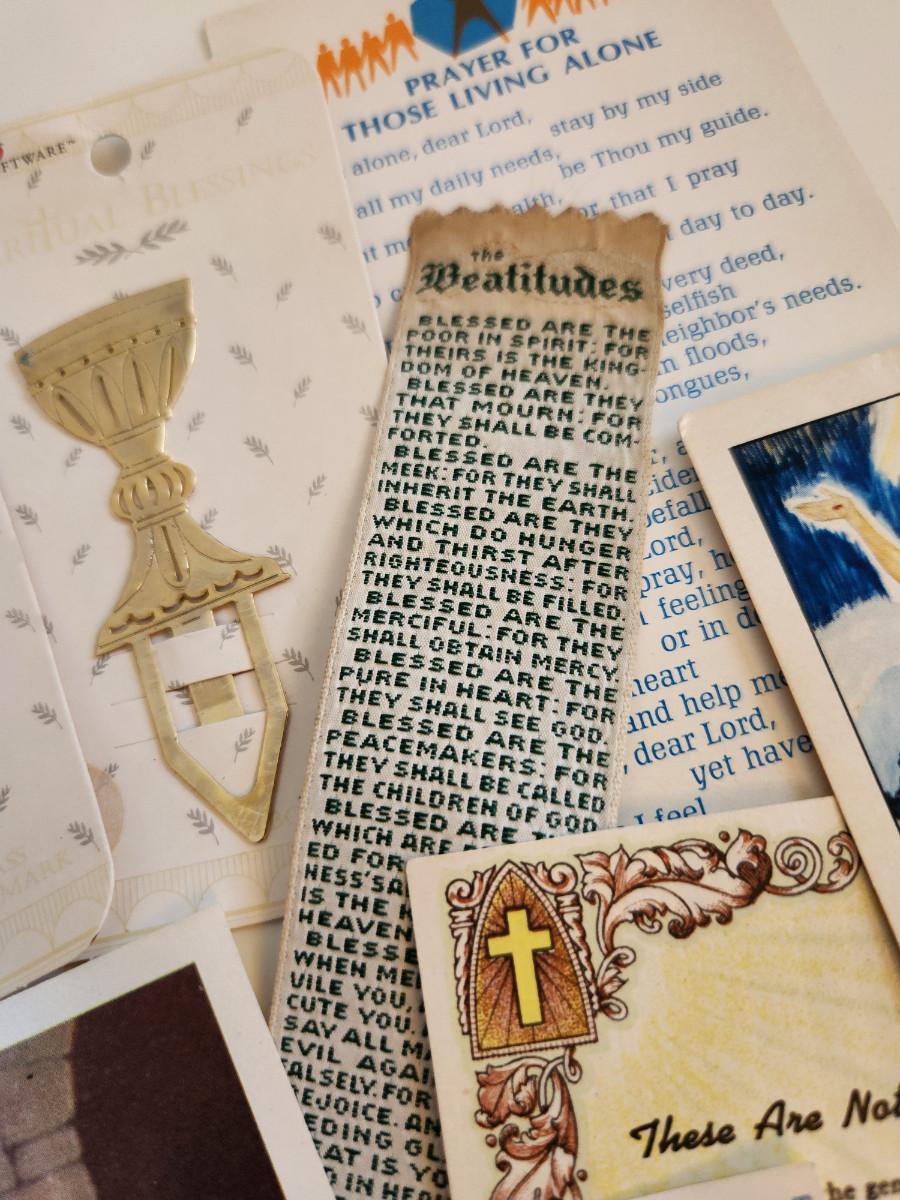 FTWARE™
RITUAL BLESSINGS
PRAYER FOR
THOSE LIVING ALONE
alone, dear Lord, stay by my side
all my daily needs, be Thou my guide.
alth, or that I pray
day to day.
very deed,
selfish
eighbor's needs.
n floods,
ongues,
Lord,
pray,
feeling
or in
heart
and help me
dear Lord,
yet have
I feel
the
Beatitudes
BLESSED ARE THE
POOR IN SPIRIT: FOR
THEIRS IS THE KING-
DOM OF HEAVEN.
BLESSED ARE THEY
THAT MOURN: FOR
THEY SHALL BE COM-
FORTED.
BLESSED ARE THE
MEEK: FOR THEY SHALL
INHERIT THE EARTH.
BLESSED ARE THEY
WHICH DO HUNGER
AND THIRST AFTER
RIGHTEOUSNESS: FOR
THEY SHALL BE FILLED.
BLESSED ARE THE
MERCIFUL: FOR THEY
SHALL OBTAIN MERCY.
BLESSED ARE THE
PURE IN HEART: FOR
THEY SHALL SEE GOD.
BLESSED ARE THE
PEACEMAKERS: FOR
THEY SHALL BE CALLED
THE CHILDREN OF GOD.
BLESSED ARE
WHICH ARE
ED FOR
NESS'SA
IS THE
HEAVEN
BLESSE
WHEN MEN
VILE YOU,
CUTE YOU,
SAY ALL MA
EVIL AGAI
ALSELY. FOR
EJOICE. AN
EDING GL
AT IS YO
IN HEAV
ASS
MARK
These Are Not
be gen